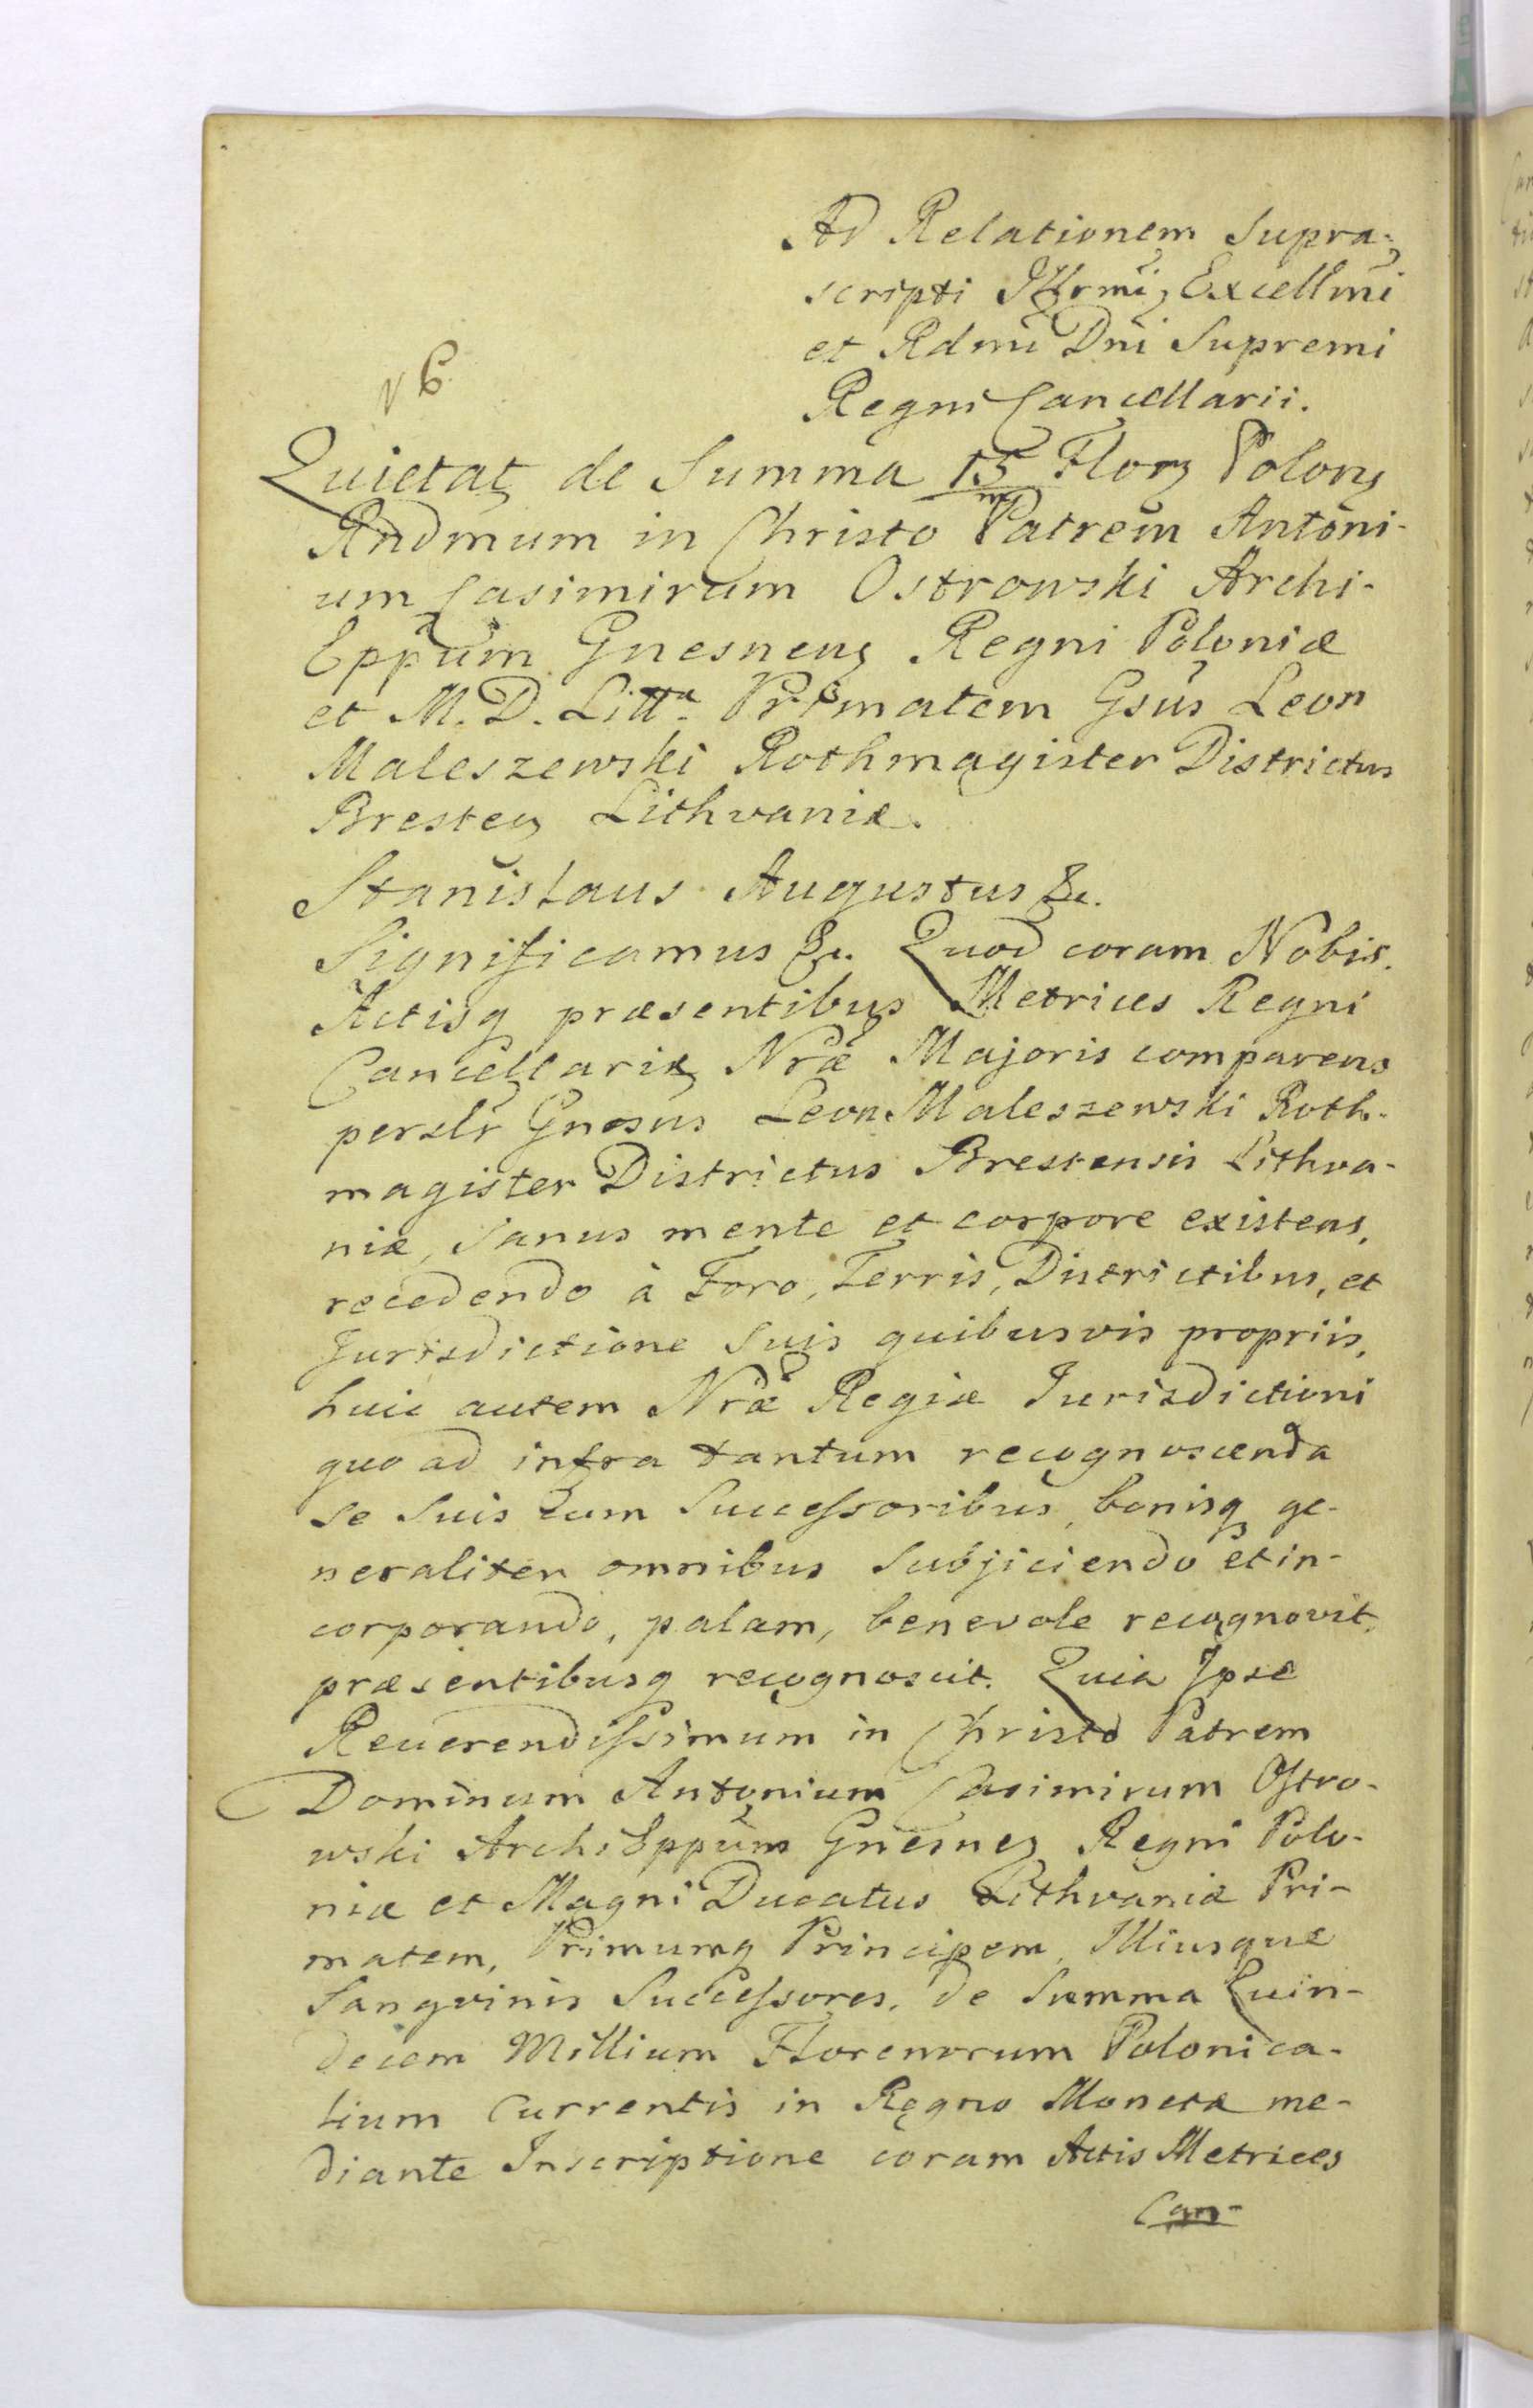 Ad Relationem Supra-
scripti Illrmi, Excellmi
et Rdmi Dni Supremi
Regni Cancellarii.
Quietat de Summa 15 Flor Polon
m
Rndmum in Christo Patrem Antoni-
um Casimirum Ostrowski Archi-
Eppum Gnesnens Regni Poloniæ
et M. D. Litt. Primatem Gsus Leon
Maleszewski Rothmagister Districtus
Bresten Lithvaniæ.
Stanislaus Augustus &c.
Significamus &c. Quod coram Nobis.
Actisq præsentibus Metrices Regni
Cancellariæ Nræ Majoris comparens
persлr Gnosus Leon Maleszewski Roth-
magister Districtus Brestensis Lithva-
niæ, Sanus mente et corpore existens,
recedendo à Foro, Terris, Districtibus, et
Jurisdictione Suis quibusvis propriis,
huic autem Nræ Regiæ Jurisdictioni
quo ad infra tantum recognoscenda
se Suis cum Successoribus, bonisq ge-
neraliter omnibus Subjiciendo et in-
corporando, palam, benevole recognovit,
præsentibusq recognoscit. Quia Ipse
Reverendissimum in Christo Patrem
Dominum Antonium Casimirum Ostro-
wski ArchiEppum Gnesnen Regni Polo-
niæ et Magni Ducatus Lithvaniæ Pri-
matem, Primumq Principem, Illiusque
Sangvinis Successores, de Summa Quin-
decem Millium Florenorum Polonica-
lium Currentis in Regno Monetæ me-
diante Inscriptione coram Actis Metrices
Can-